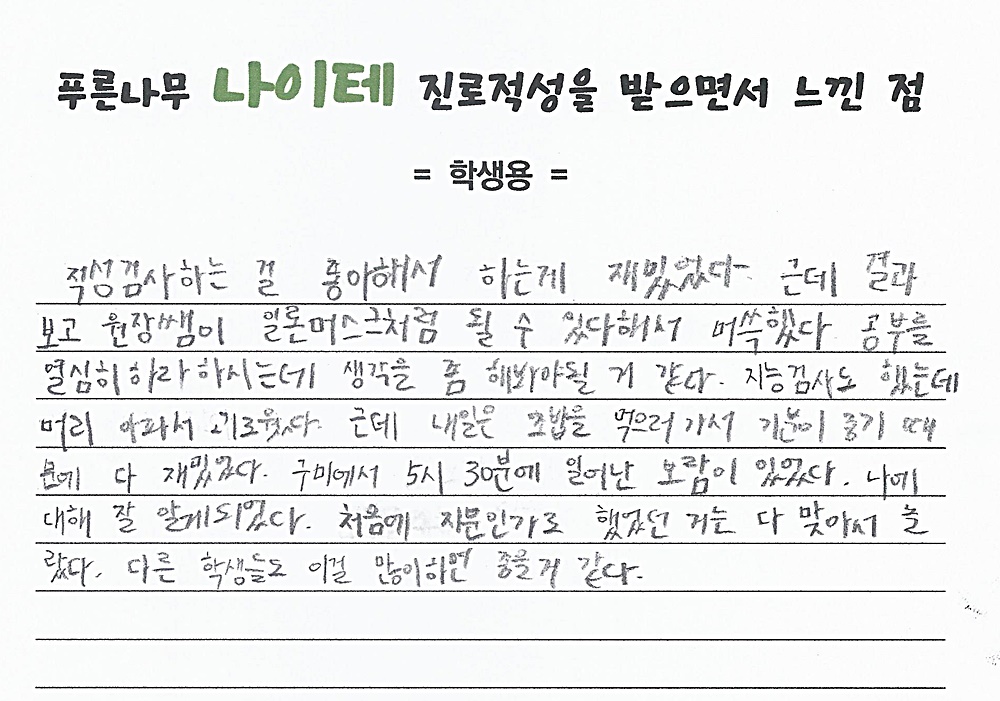 푸른나무 나이테 진로적성을 받으면서 느낀 점
= 학생용 =
적성검사하는 걸 좋아해서 하는게 재밌었다. 근데 결과
보고 원장쌤이 일론머스크처럼 될 수 있다해서 머쓱했다 공부를
열심히 하라 하시는데 생각을 좀 해봐야될 거 같다. 지능검사도 했는데
머리 아파서 괴로웠다. 근데 내일은 초밥을 먹으러 가서 기분이 좋기 때
문에 다 재밌었다. 구미에서 5시 30분에 일어난 보람이 있었다. 나에
대해 잘 알게되었다. 처음에 지문인가로 했었던 거는 다 맞아서 놀
랐다. 다른 학생들도 이걸 많이하면 좋을거 같다.